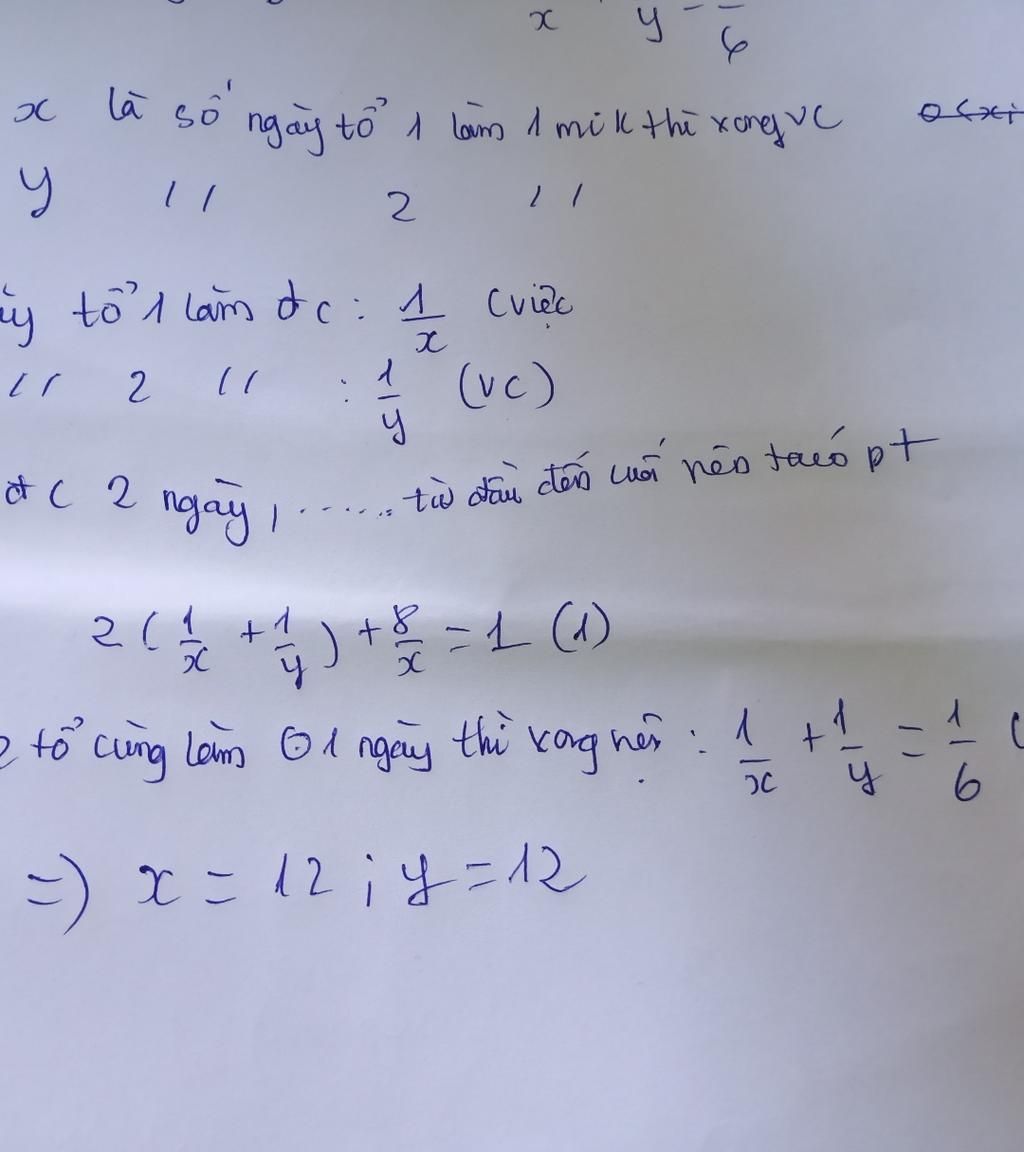 x y - 6
x là số ngày tổ 1 làm 1 mik thì xong vc
y // 2 //
tổ 1 làm đc: 1/x (việc
// 2 // : 1/y (vc)
đc 2 ngày, ...... từ đầu đến cuối nên ta có pt
2(1/x + 1/y) + 8/x = 1 (1)
2 tổ cùng làm 1 ngày thì xong nên: 1/x + 1/y = 1/6 (
=) x = 12 ; y = 12